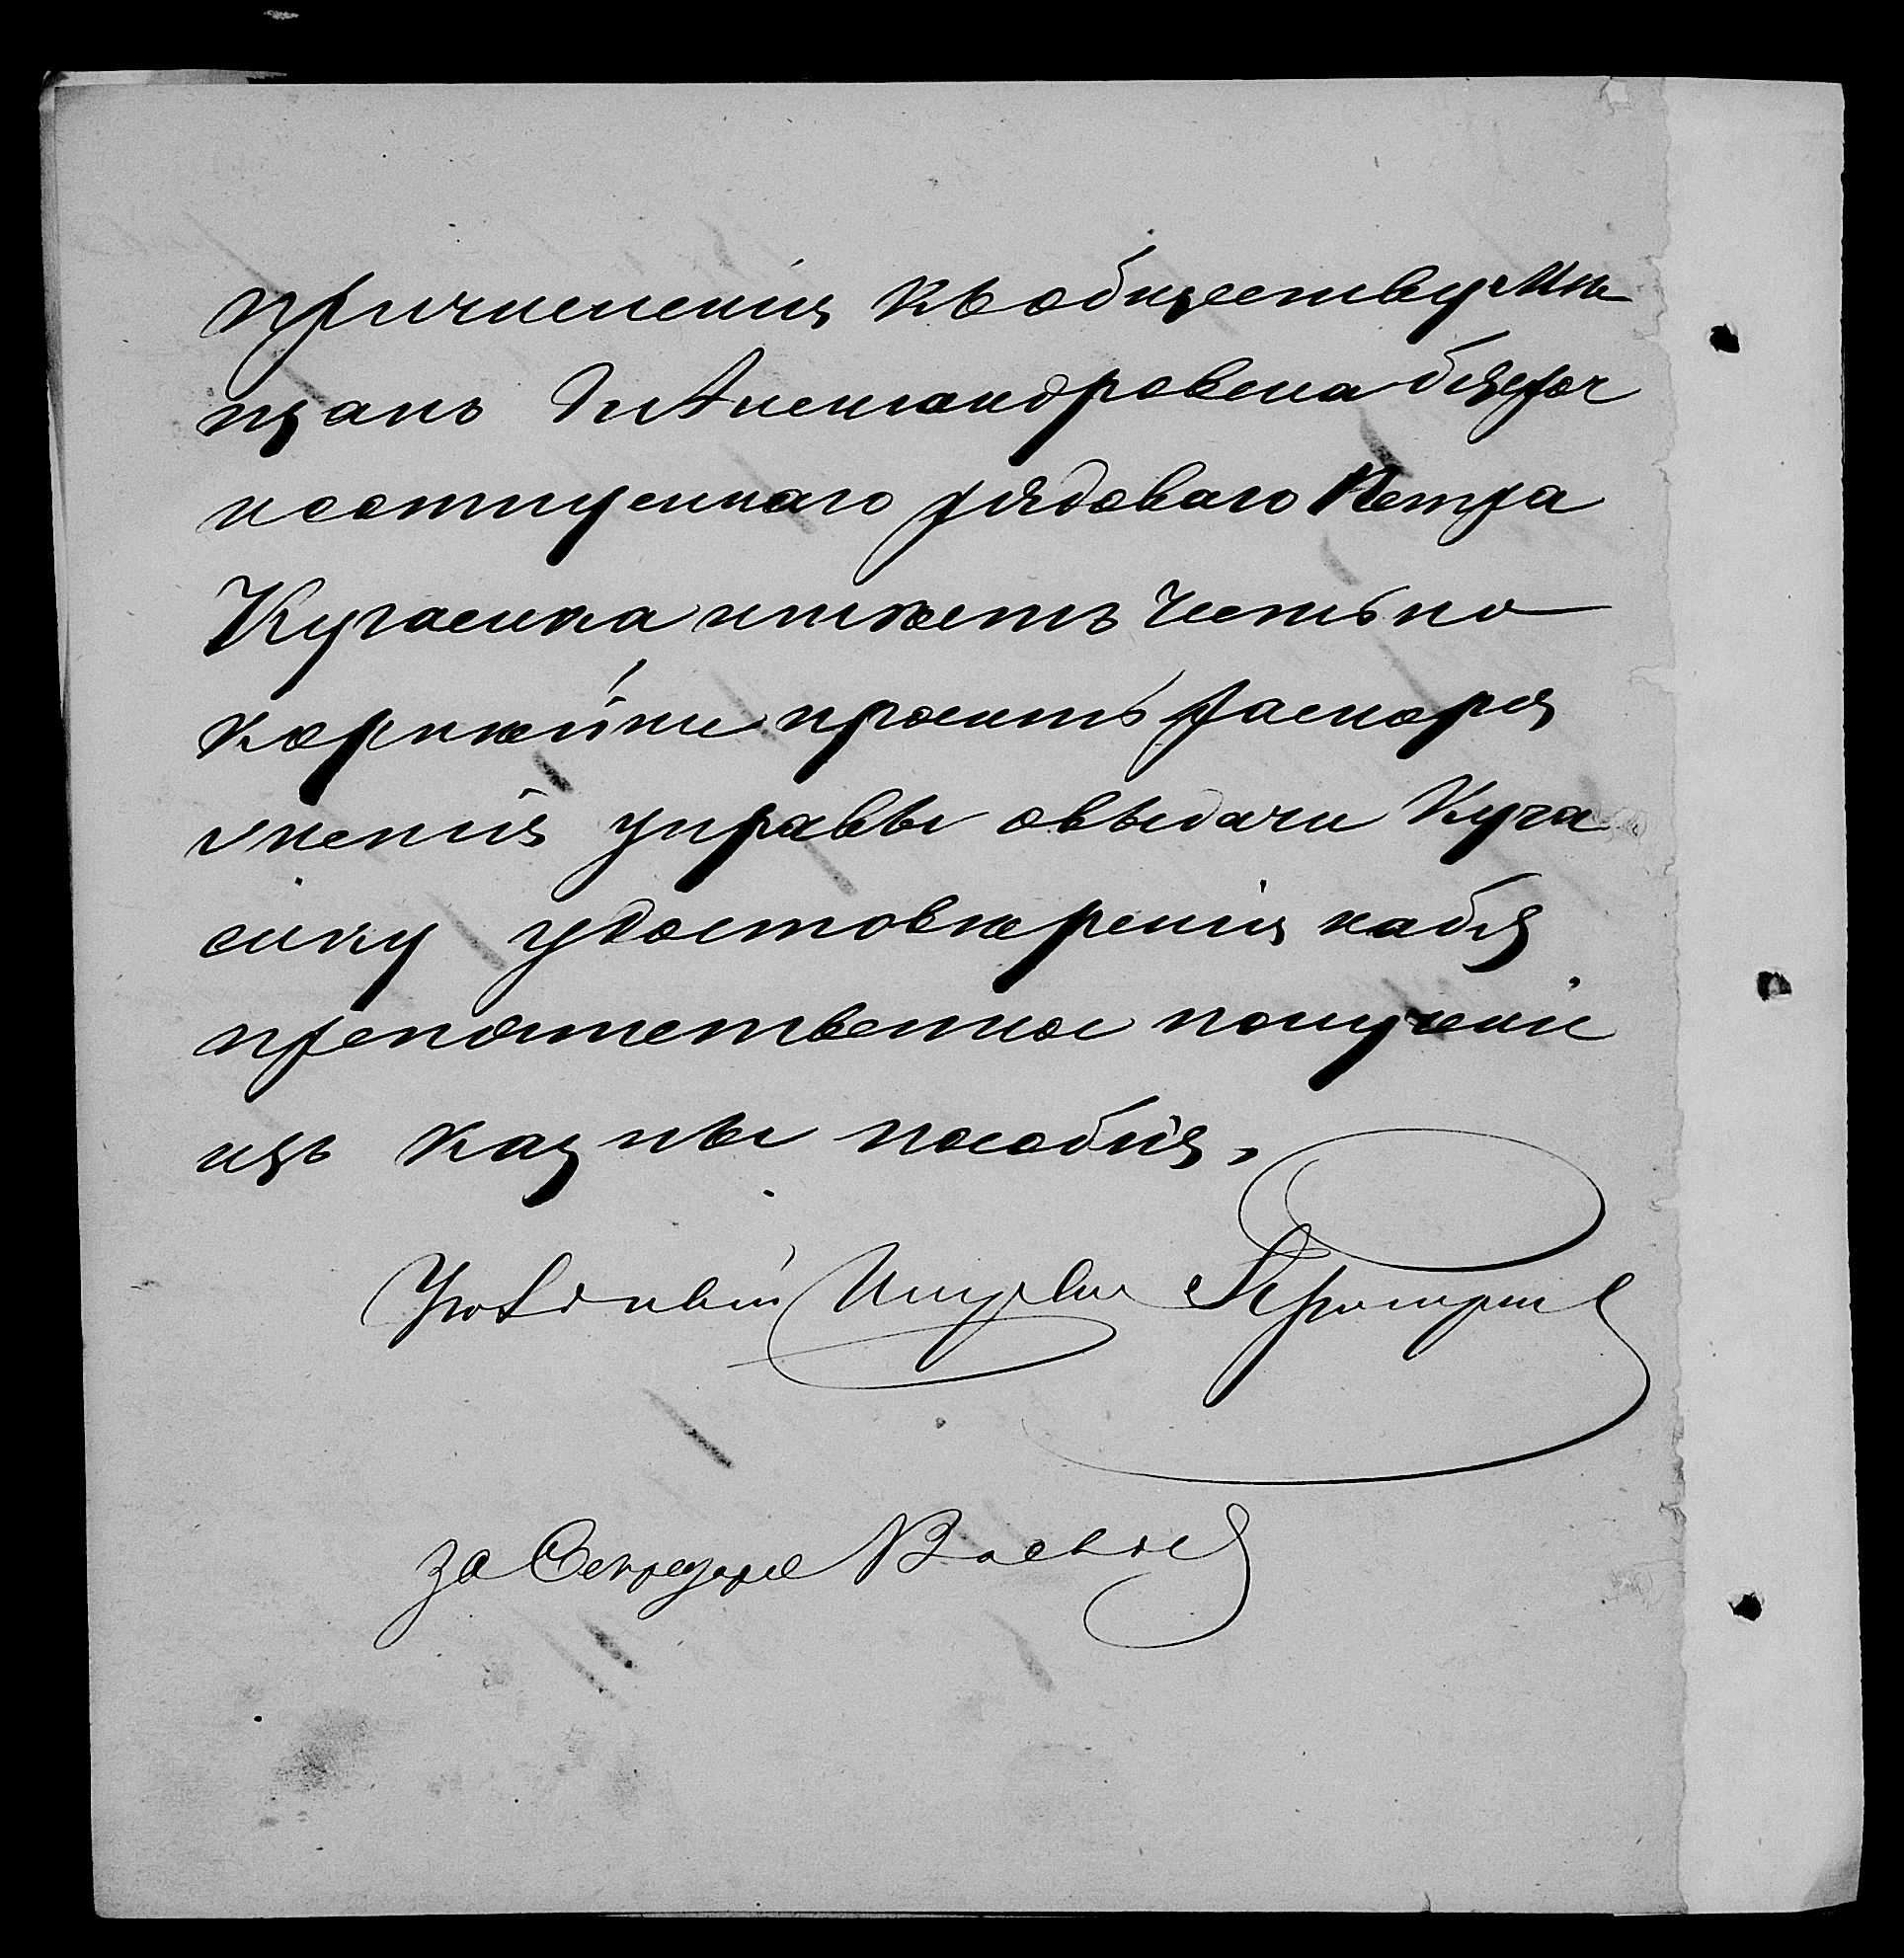 причисленія къ обществу Мѣ
щанъ г. Александровска безсроч
ноотпущеннаго рядоваго Петра
Кугаенка имѣетъ честь по
корнѣйше просить распоря
женія управы о выдачи Куга
енку удостовѣренія на без
препятственное полученіе
изъ казны пособія,
Уѣздный
за Секретаря